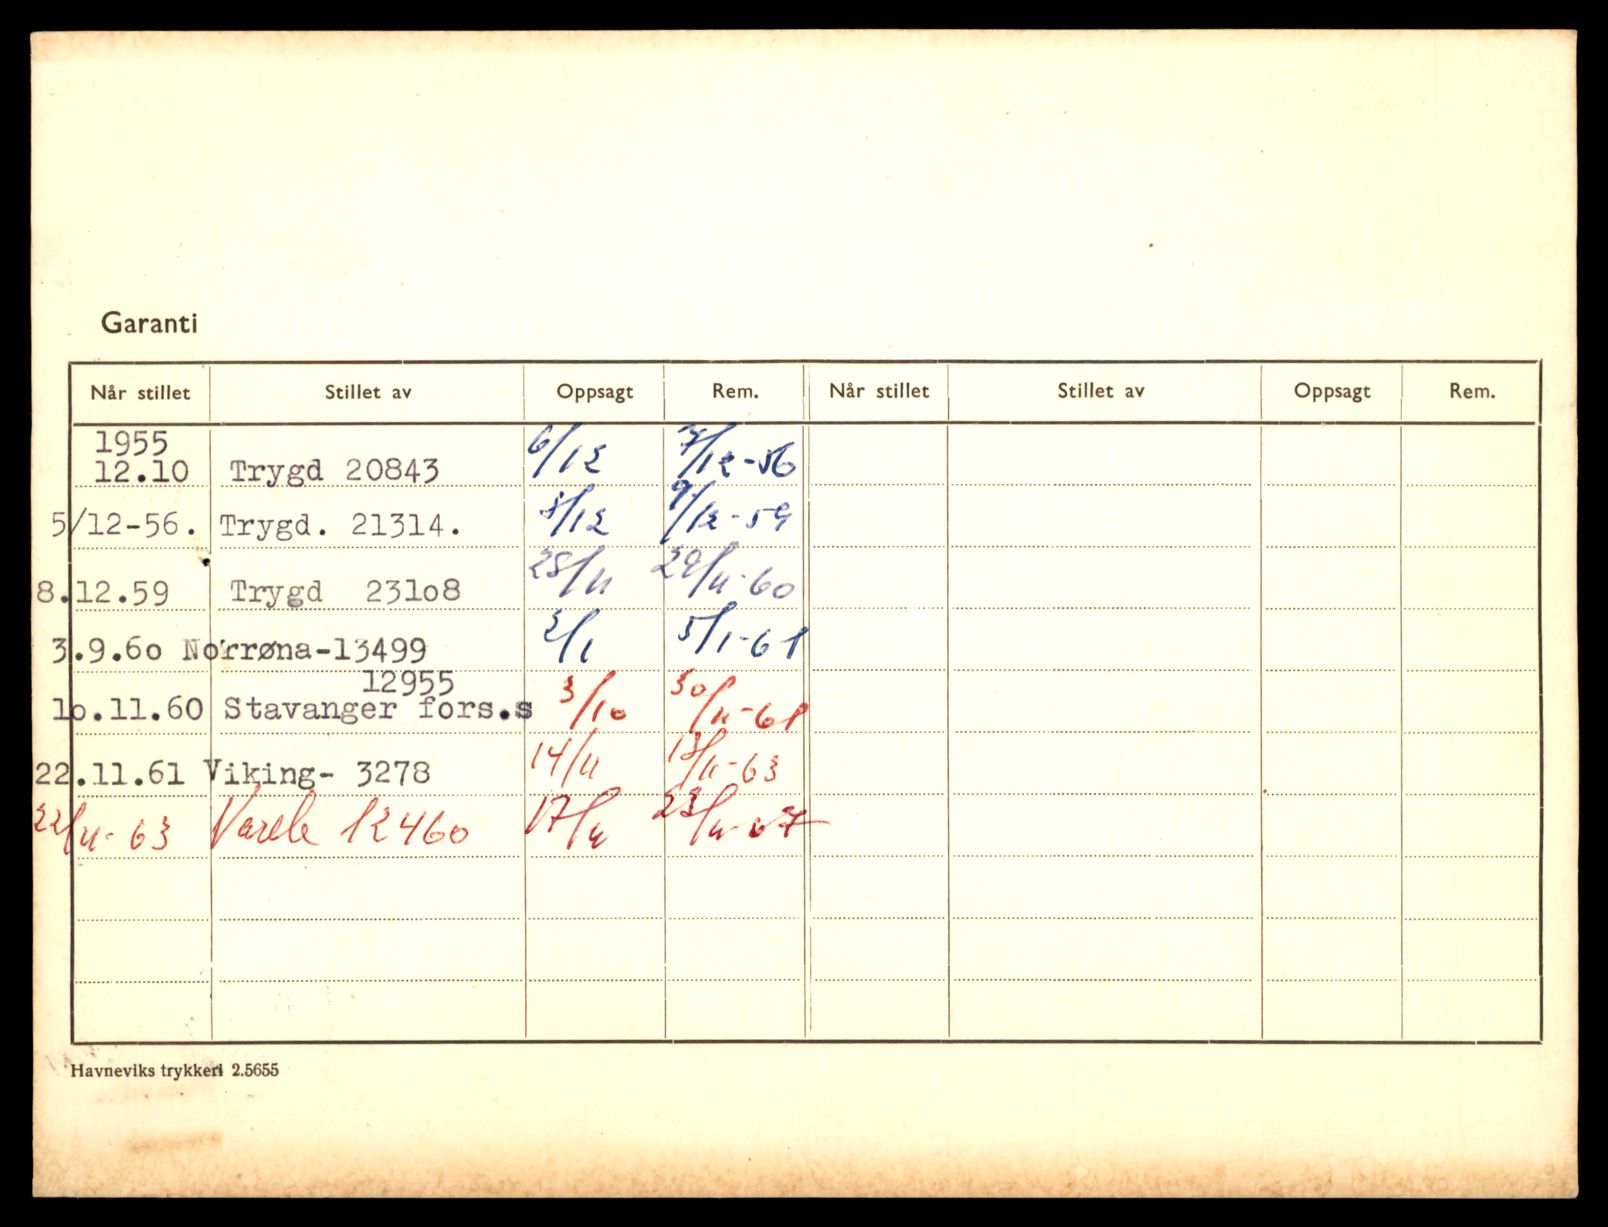 Garanti
Når stillet Stillet av Oppsagt Rem. Når stillet Stillet av Oppsagt Rem.
1955
12.10 Trygd 20843 6/12 7/12-56
5/12-56. Trygd. 21314. 5/12 9/12-59
8.12.59 Trygd 23lo8 28/11 29/11-60
3.9.6o Norrøna-13499 2/1 5/1-61
12955
lo.11.60 Stavanger fors.s 3/10 30/11-61
22.11.61 Viking- 3278 14/11 18/11-63
22/11-63 12460 17/11 23/11-67
Havneviks trykkeri 2.5655